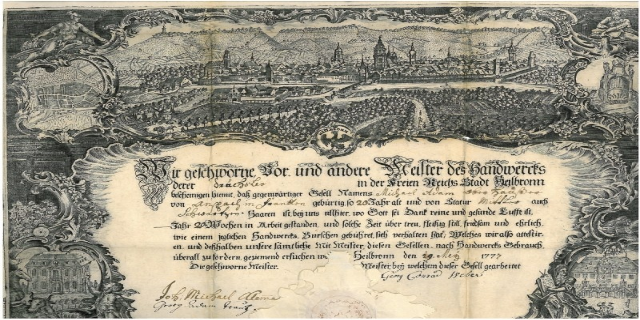 Wir geschworne Vor. und andere Meister des Handwercks
derer in der Freien Reichs Stadt Heilbronn
bescheinigen hiemit, daß gegenwärtiger Gesell Namens Michael Adam
von gebürtig so 28 Jahr alt und von Statur Mittler auch
Haaren ist bey uns allhier, wo Gott sey Danck reine und gesunde Lufft ist,
Jahr 28 Wochen in Arbeit gestanden, und solche Zeit über treu, fleißig still, fridsam und ehrlich,
wie einem jeglichen Handwercks Burschen gebühret sich verhalten hat, Welches wir also attestir-
en, und deßhalben unsere sämtliche Mit Meister, diesen Gesellen, nach Handwercks Gebrauch,
überall zu fordern, geziemend ersuchen Heilbronn den 29 1777
Die geschworne Meister. Meister bey welchem dieser Gesell gearbeitet
Joh. Michael
Georg Conrad Weber
Georg Adam